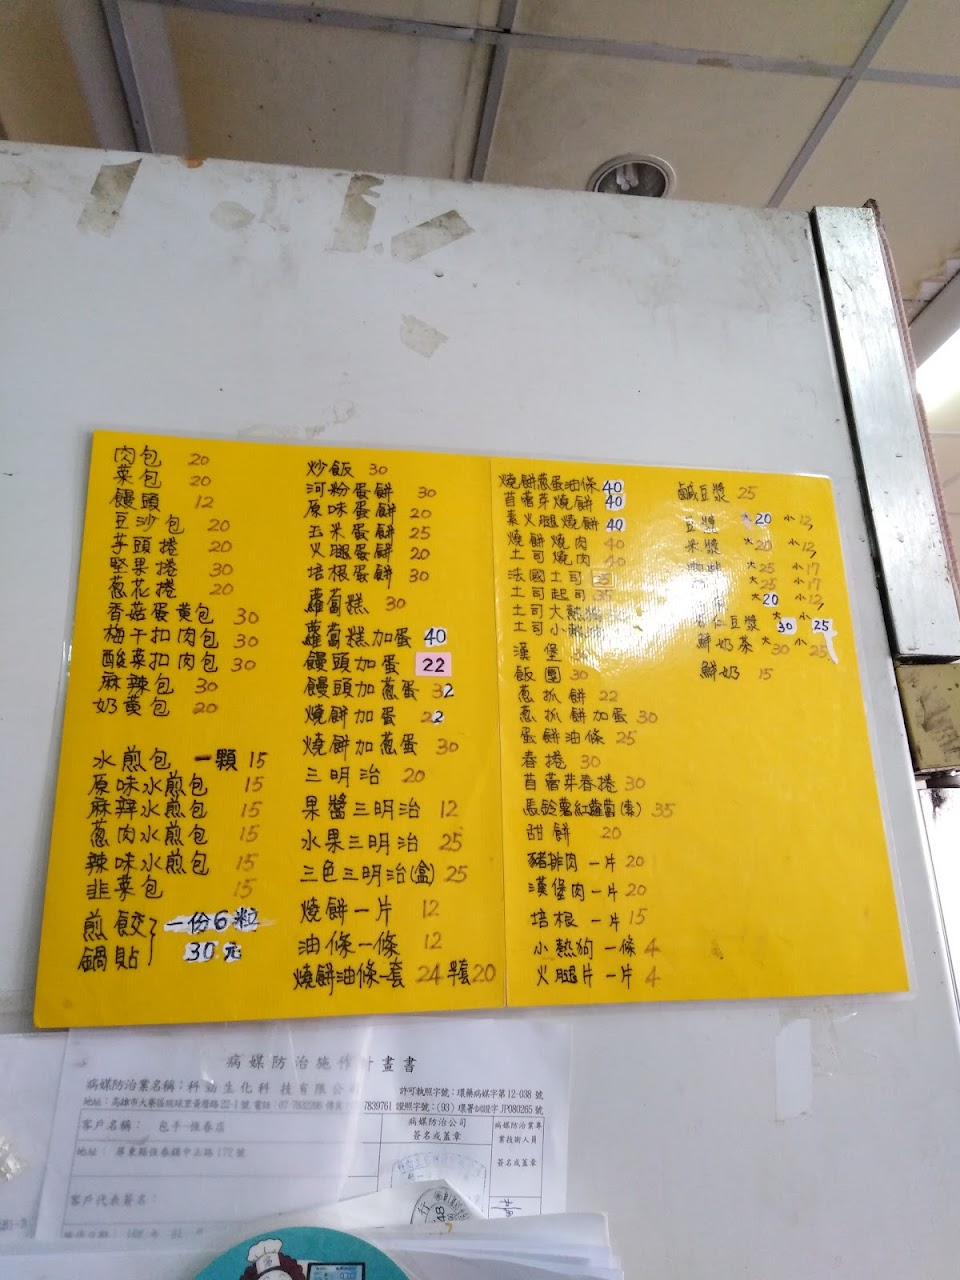 肉包 20
菜包 20
饅頭 12
豆沙包 20
芋頭捲 20
堅果捲 30
蔥花捲 20
香菇蛋黃包 30
梅干扣肉包 30
酸菜扣肉包 30
麻辣包 30
奶黃包 20
水煎包 一顆 15
原味水煎包 15
麻辣水煎包 15
蔥肉水煎包 15
辣味水煎包 15
韭菜包 15
煎餃 一份6粒
鍋貼 30元
炒飯 30
河粉蛋餅 30
原味蛋餅 20
玉米蛋餅 25
火腿蛋餅 20
培根蛋餅 30
蘿蔔糕 30
蘿蔔糕加蛋 40
饅頭加蛋 22
饅頭加蔥蛋 32
燒餅加蛋 22
燒餅加蔥蛋 30
三明治 20
果醬三明治 12
水果三明治 25
三色三明治(盒) 25
燒餅一片 12
油條一條 12
燒餅油條一套 24 半套20
燒餅蔥蛋油條 40
苜蓿芽燒餅 40
素火腿燒餅 40
燒餅燒肉 40
土司燒肉 40
法國土司
土司起司 35
土司大熱狗
土司小
漢堡 30
飯團 30
蔥抓餅 22
蔥抓餅加蛋 30
蛋餅油條 25
春捲 30
苜蓿芽春捲 30
馬鈴薯紅蘿蔔(素) 35
甜餅 20
豬排肉一片 20
漢堡肉一片 20
培根一片 15
小熱狗一條 4
火腿片一片 4
鹹豆漿 25
豆漿 大20 小12
米漿 大20 小12
大25 小17
大25 小17
大20 小12
仁豆漿 大30 小25
鮮奶茶 大30 小25
鮮奶 15
病媒防治施作計畫書
病媒防治業名稱：科 生化科技有限公司
許可執照字號：環藥病媒字第12-038 號
證照字號：(93) 環署訓證字JP080265號
客戶名稱： 包手-恆春店
病媒防治公司
簽名或蓋章
病媒防治業專
業技術人員
簽名或蓋章
地址： 屏東縣恆春鎮中正路172號
客戶代表簽名：